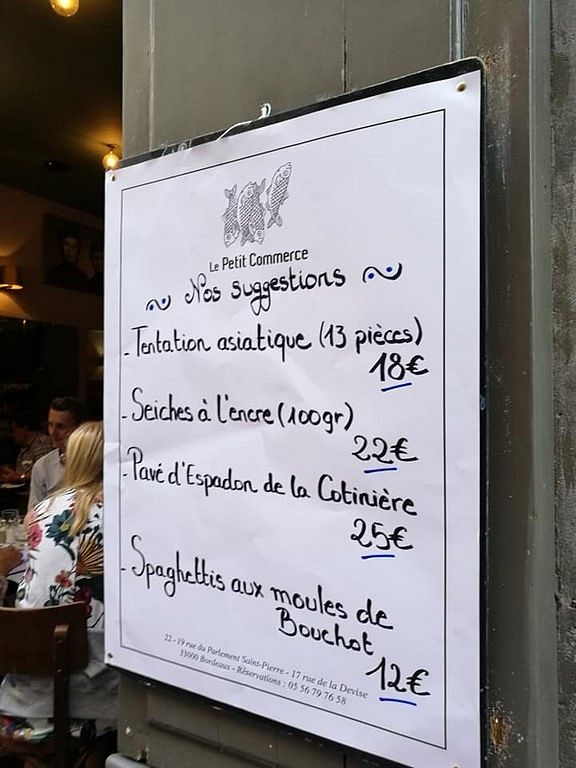 Le Petit Commerce
Nos suggestions
- Tentation asiatique (13 pièces)
18€
- Seiches à l'encre (100gr)
22€
- Pavé d'Espadon de la Cotinière
25€
- Spaghettis aux moules de
Bouchot
12€
22 - 19 rue du Parlement Saint-Pierre - 17 rue de la Devise
33000 Bordeaux - Réservations : 05 56 79 76 58